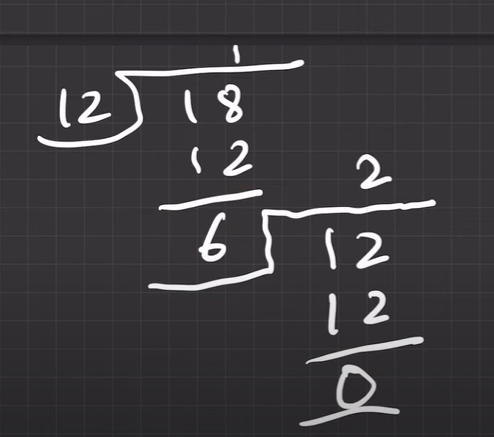 1
12 18
12 2
6 12
12
0